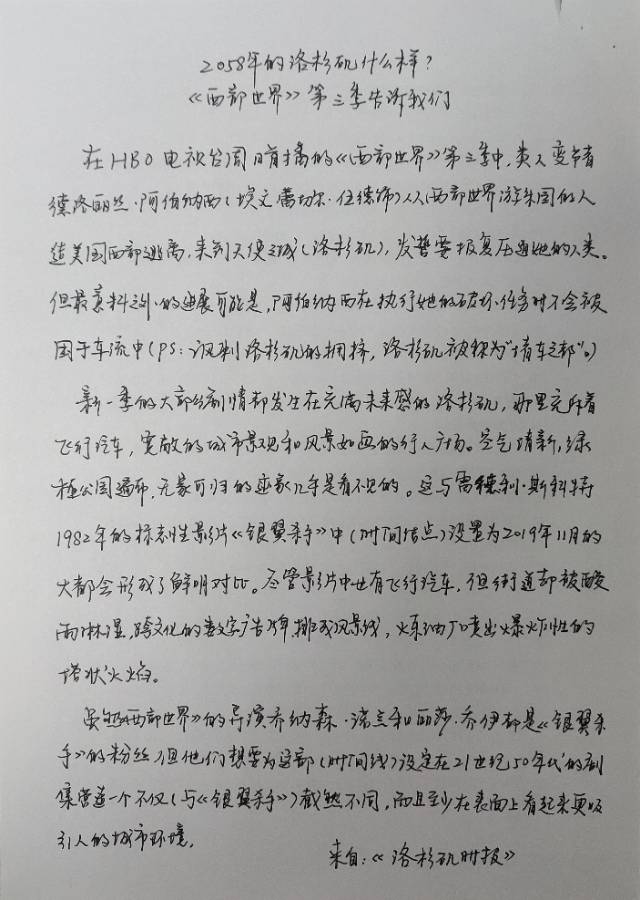 2058年的洛杉矶什么样?
《西部世界》第三季告诉我们
在HBO电视台周日首播的《西部世界》第三季中,类人变节者
德洛丽丝·阿伯纳西(埃文·蕾切尔·伍德饰)从西部世界游乐园的人
造美国西部逃离,来到天使之城(洛杉矶),发誓要报复压迫她的人类。
但最意料之外的进展可能是,阿伯纳西在执行她的破坏任务时不会被
困于车流中(PS:讽刺洛杉矶的拥挤,洛杉矶被称为“堵车之都”。)
新一季的大部分剧情都发生在充满未来感的洛杉矶,那里充斥着
飞行汽车,宽敞的城市景观和风景如画的行人广场。空气清新,绿
植公园遍布,无家可归的迹象几乎是看不见的。这与雷德利·斯科特
1982年的标志性影片《银翼杀手》中(时间结点)设置为2019年11月的
大都会形成了鲜明对比。尽管影片中也有飞行汽车,但街道却被酸
雨淋湿,跨文化的数字广告牌排成风景线,炼油厂喷出爆炸性的
塔状火焰。
虽然《西部世界》的导演乔纳森·诺兰和丽莎·乔伊都是《银翼杀
手》的粉丝,但他们想要为这部(时间线)设定在21世纪50年代的剧
集营造一个不仅(与《银翼杀手》)截然不同,而且至少在表面上看起来更吸
引人的城市环境。
来自:《洛杉矶时报》